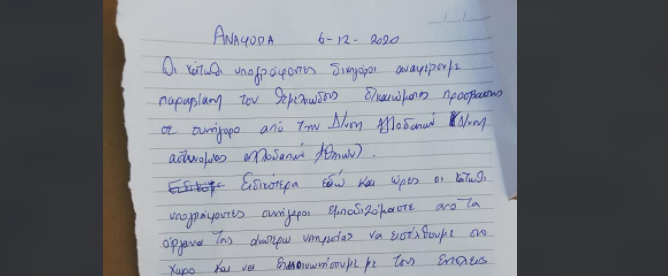 ΑΝΑΦΟΡΑ 6-12-2020
Οι κάτωθι υπογράφοντες δικηγόροι αναφέρουμε
παραβίαση του θεμελιώδους δικαιώματος πρόσβασης
σε συνήγορο από την Δ/νση Αλλοδαπών (Δ/νση
αστυνομίας αλλοδαπών Αθηνών).
Ειδικότερα εδώ και ώρες οι κάτωθι
υπογράφοντες συνήγοροι εμποδιζόμαστε από τα
όργανα της ανωτέρω υπηρεσίας να εισέλθουμε στο
χώρο και να επικοινωνήσουμε με τους εντολείς